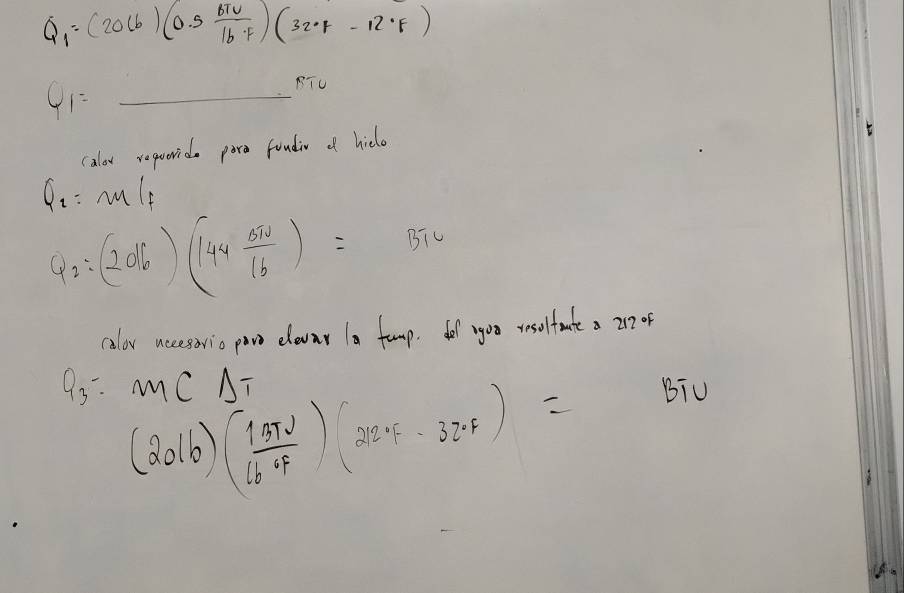 Q₁ = (20lb) (0.5 BTU/lb °F) (32°F - 12°F)
Q₁ = ________ BTU
calor requerido para fundir el hielo
Q₂ = m Lf
Q₂ = (20lb) (144 BTU/lb) = BTU
calor necesario para elevar la temp. del agua resultante a 212°F
Q₃ = m C ΔT
(20lb) (1 BTU/lb °F) (212°F - 32°F) = BTU